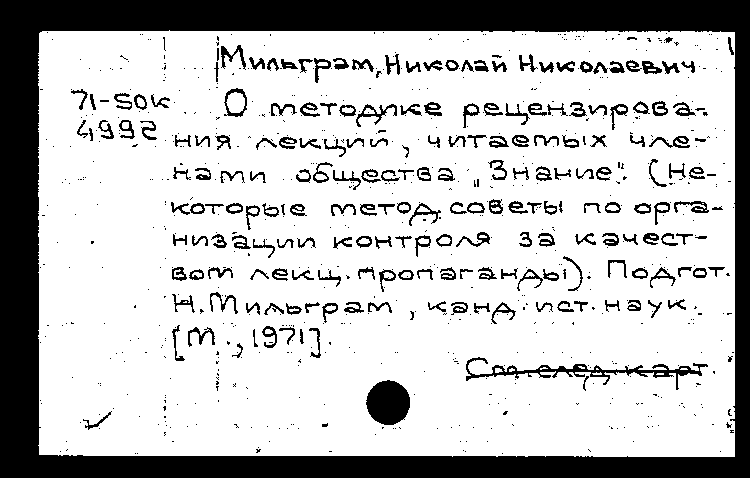 Мильграм, Николай Николаевич
71-50к
4992
О методике рецензирова-
ния лекций, читаемых чле-
нами общества „Знание". (Не-
которые метод. советы по орга-
низации контроля за качест-
вом лекц. пропаганды). Подгот.
Н. Мильграм, канд. ист. наук.
[М., 1971].
См. след. карт.